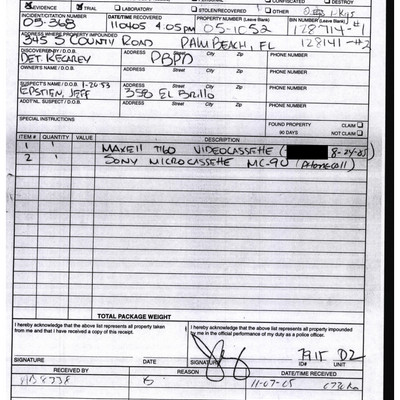 EVIDENCE TRIAL LABORATORY STOLEN/RECOVERED CONFISCATED DESTROY OTHER
INCIDENT/CITATION NUMBER DATE/TIME RECOVERED PROPERTY NUMBER (Leave Blank) BIN NUMBER (Leave Blank)
110405 4:05pm 05-1C52 128714-#1
ADDRESS WHERE PROPERTY IMPOUNDED Street City Zip
345 S COUNTY ROAD PALM BEACH, FL 128141-#2
DISCOVERED BY / D.O.B. ADDRESS Street City Zip PHONE NUMBER
DET. PBPD
OWNER'S NAME / D.O.B. ADDRESS Street City Zip PHONE NUMBER
SUSPECT'S NAME / D.O.B. 1-20-53 ADDRESS Street City Zip PHONE NUMBER
EPSTIEN, JEFF 358 EL BRILLO
ADDT'NL SUSPECT / D.O.B. ADDRESS Street City Zip PHONE NUMBER
SPECIAL INSTRUCTIONS FOUND PROPERTY CLAIM
90 DAYS NOT CLAIM
ITEM # QUANTITY VALUE DESCRIPTION
1 1 MAXELL T160 VIDEOCASSETTE ( 8-24-05)
2 1 SONY MICROCASSETTE MC-90 (Phone call)
TOTAL PACKAGE WEIGHT
I hereby acknowledge that the above list represents all property taken from me and that I have received a copy of this receipt.
I hereby acknowledge that the above list represents all property impounded by me in the official performance of my duty as a police officer.
7915 D2
SIGNATURE DATE SIGNATURE ID# UNIT
RECEIVED BY REASON DATE
11-07-05